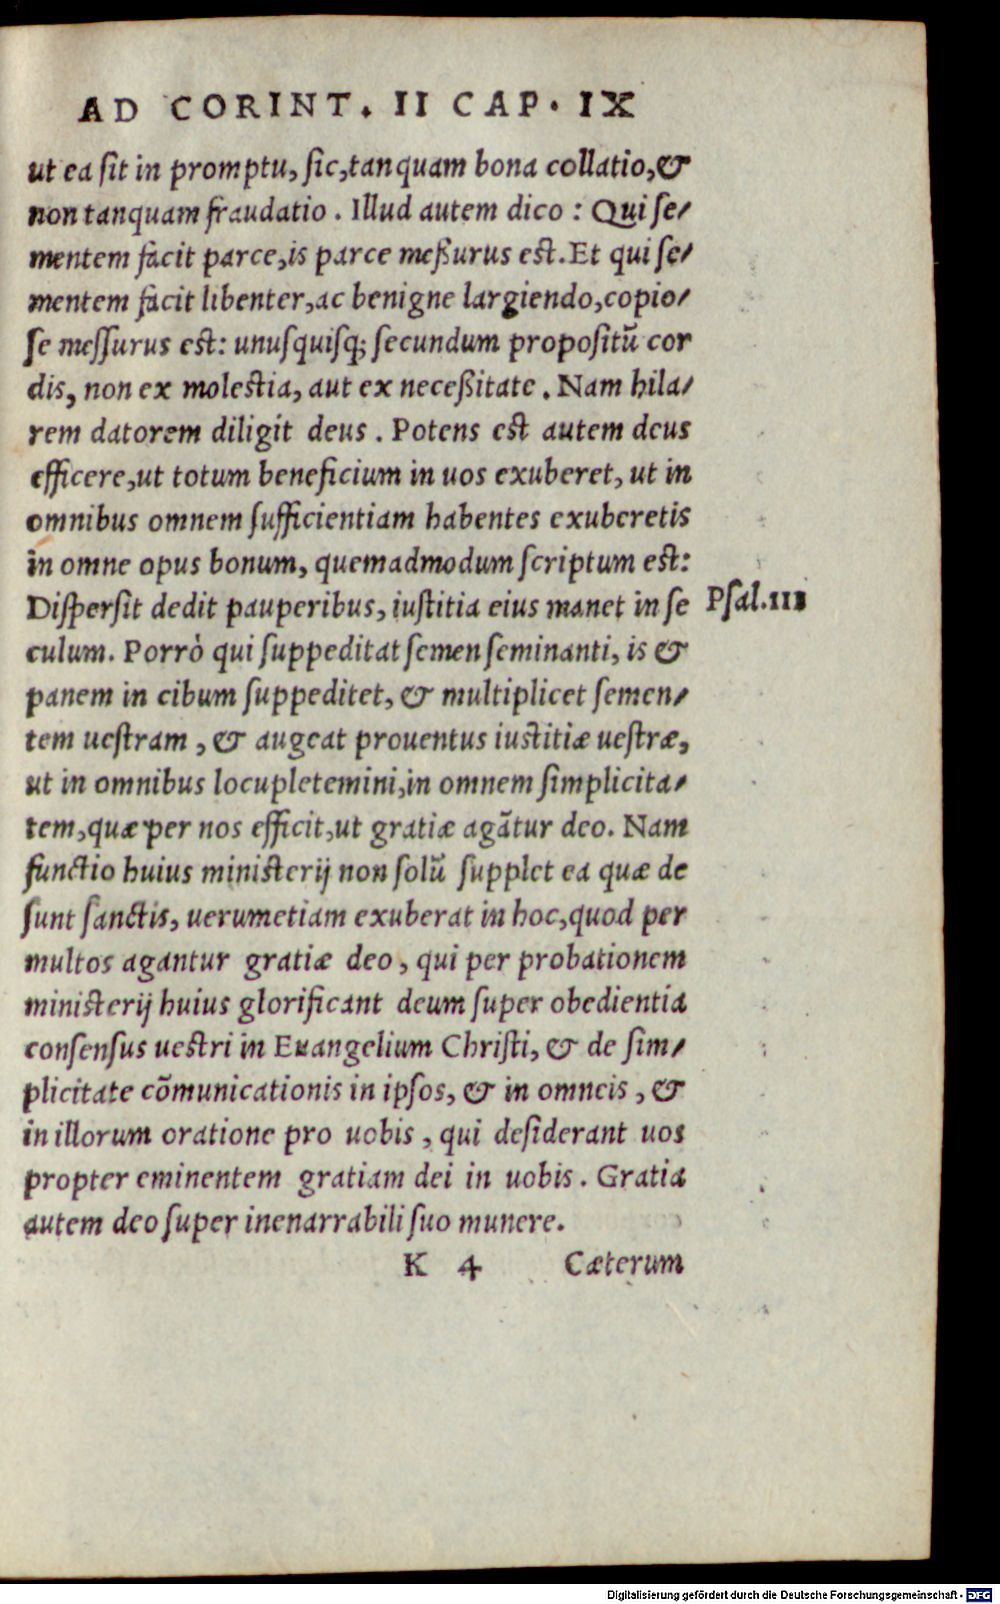 AD CORINT. II CAP. IX
ut ea sit in promptu, sic, tanquam bona collatio, &
non tanquam fraudatio. Illud autem dico: Qui se/
mentem facit parce, is parce meßurus est. Et qui se/
mentem facit libenter, ac benigne largiendo, copio/
se messurus est: unusquisq; secundum propositũ cor
dis, non ex molestia, aut ex neceßitate. Nam hila/
rem datorem diligit deus. Potens est autem deus
efficere, ut totum beneficium in uos exuberet, ut in
omnibus omnem sufficientiam habentes exuberetis
in omne opus bonum, quemadmodum scriptum est:
Dispersit dedit pauperibus, iustitia eius manet in se
Psal.111
culum. Porrò qui suppeditat semen seminanti, is &
panem in cibum suppeditet, & multiplicet semen/
tem uestram, & augeat prouentus iustitiæ uestræ,
ut in omnibus locupletemini, in omnem simplicita/
tem, quæ per nos efficit, ut gratiæ agãtur deo. Nam
functio huius ministerij non solũ supplet ea quæ de
sunt sanctis, uerumetiam exuberat in hoc, quod per
multos agantur gratiæ deo, qui per probationem
ministerij huius glorificant deum super obedientia
consensus uestri in Euangelium Christi, & de sim/
plicitate cõmunicationis in ipsos, & in omneis, &
in illorum oratione pro uobis, qui desiderant uos
propter eminentem gratiam dei in uobis. Gratia
autem deo super inenarrabili suo munere.
K 4 Cæterum
Digitalisierung gefördert durch die Deutsche Forschungsgemeinschaft - DFG